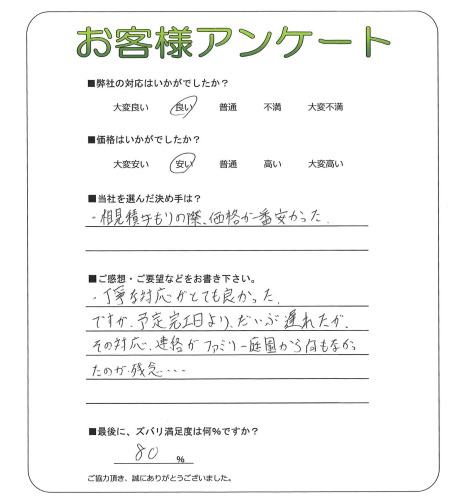 お客様アンケート
■弊社の対応はいかがでしたか？
大変良い 良い 普通 不満 大変不満
■価格はいかがでしたか？
大変安い 安い 普通 高い 大変高い
■当社を選んだ決め手は？
・相見積もりの際、価格が一番安かった.
■ご感想・ご要望などをお書き下さい。
・丁寧な対応がとても良かった.
ですが、予定完工日より、だいぶ遅れたが、
その対応、連絡がファミリー庭園から何もなかっ
たのが残念・・・
■最後に、ズバリ満足度は何%ですか？
80 %
ご協力頂き、誠にありがとうございました。